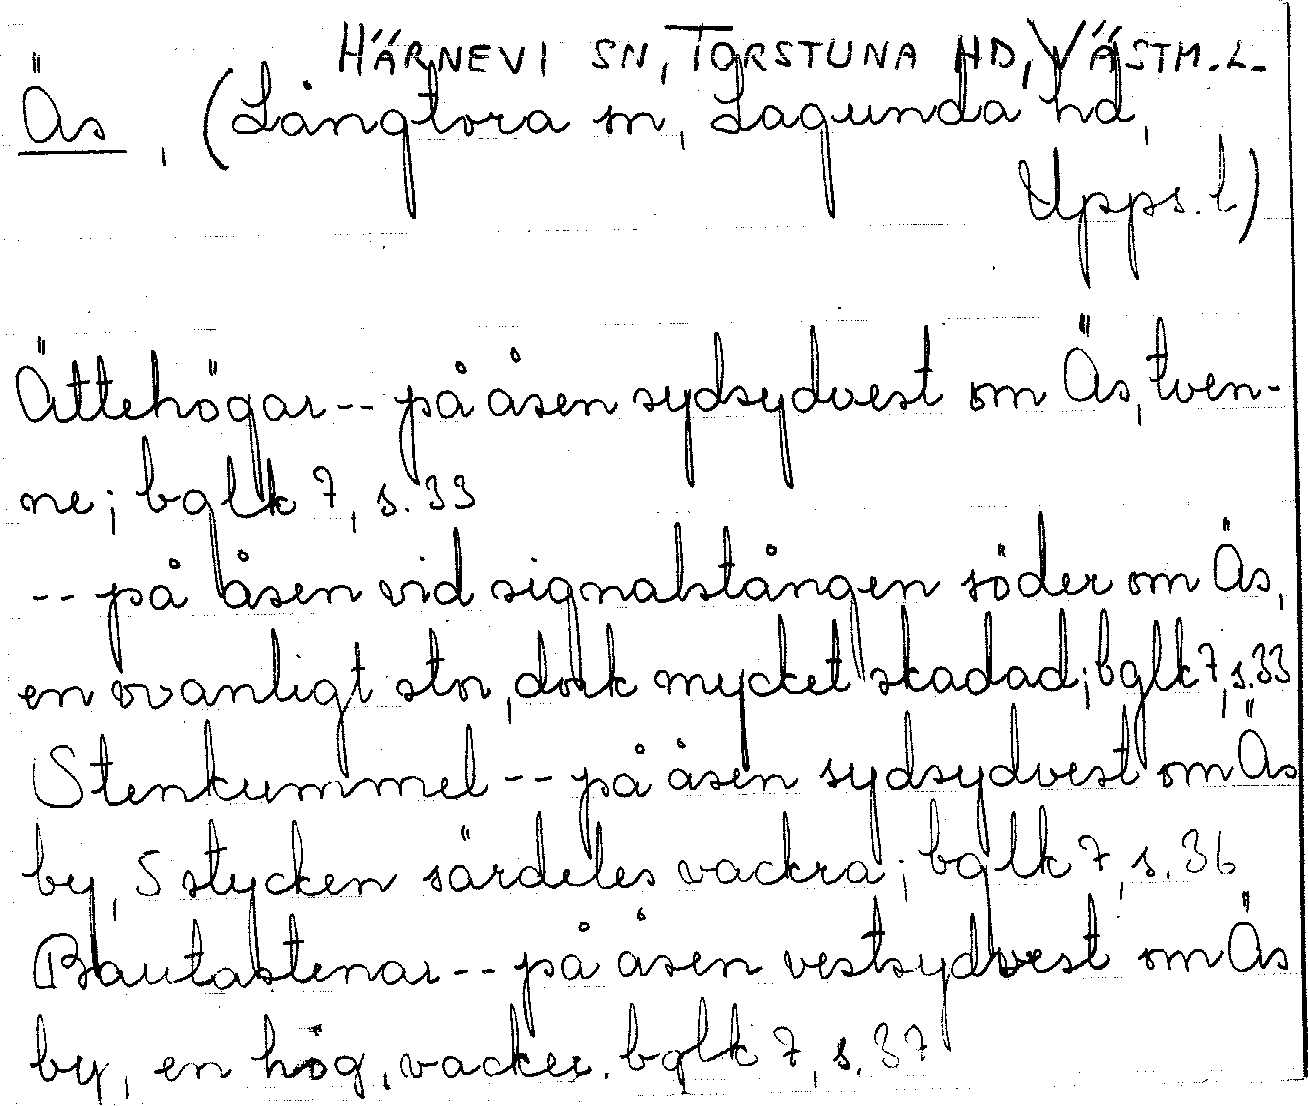 HÄRNEVI SN, TORSTUNA HD, VÄSTM. L.
Äs, (Långtora sn, Lagunda hd,
Upps. l)
Ättehögar -- på åsen sydsydvest om Äs, tven-
ne; bglk 7, s. 33
-- på åsen vid signalstången söder om Äs,
en ovanligt stor, dock mycket skadad; bglk 7, s. 33
Stenkummel -- på åsen sydsydvest om Äs
by, 5 stycken särdeles vackra; bglk 7, s. 36
Bautastenar -- på åsen vestsydvest om Äs
by, en hög, vacker. bglk 7, s. 37